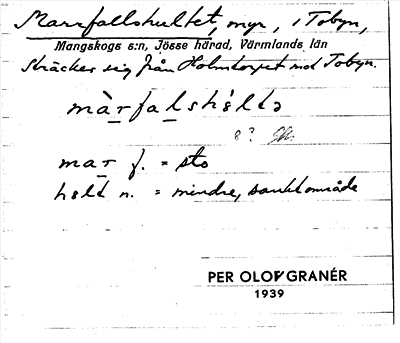 Marrfallshultet, myr, i Tobyn,
Mangskogs s:n, Jösse härad, Värmlands län
Sträcker sig från Holmtorpet mot Tobyn.
màrfalshèltə
e?
mar f. = sto
hèlt n. = mindre, sankt område
PER OLOF GRANÉR
1939